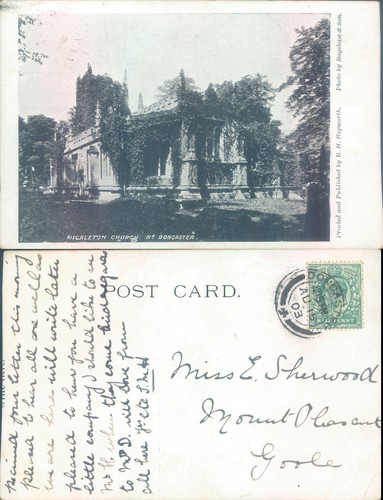 HICKLETON CHURCH, Nr DONCASTER.
Printed and Published by R. H. Hepworth. Photo by Bagshaw & Son.
POST CARD.
HALFPENNY
AU
03
Miss E. Sherwood
Mount Pleasant
Goole
your letter this morng
to hear all are well as
we are here will write later
pleased to hear you have a
little company I should like to
they come
to Mr D. will love from
all here